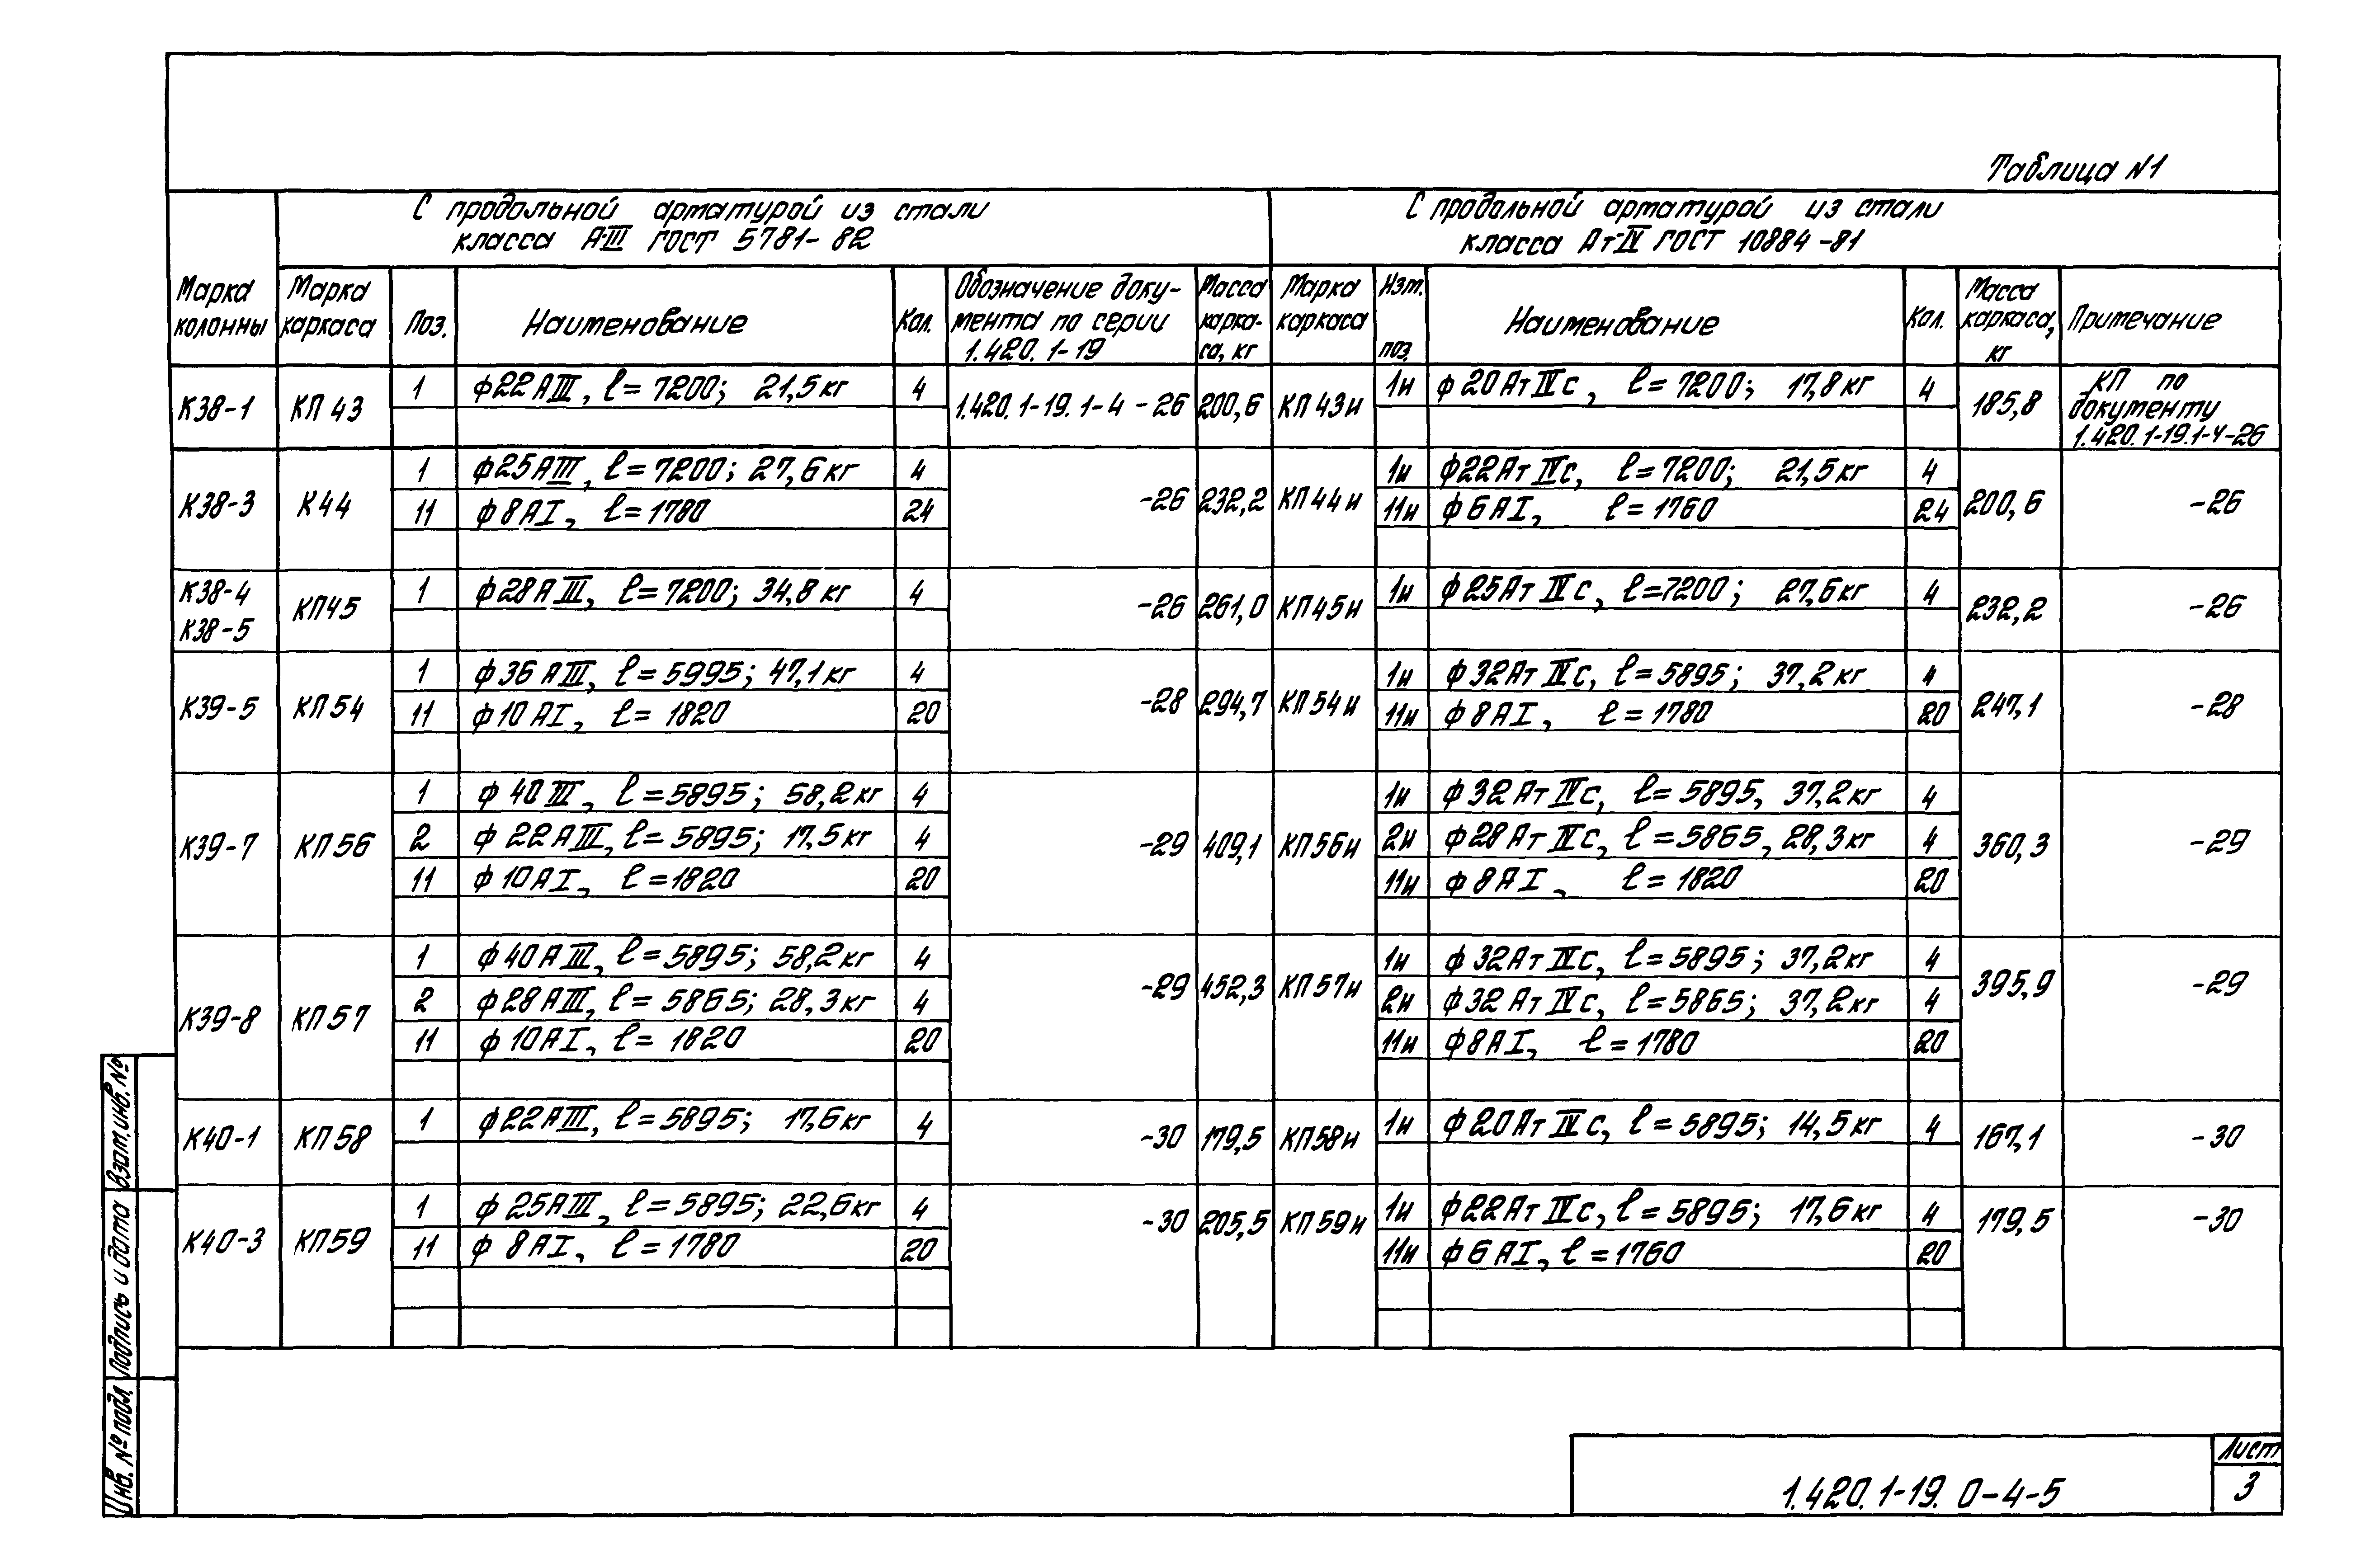 Таблица N1
С продольной арматурой из стали
класса А-III ГОСТ 5781-82
С продольной арматурой из стали
класса Ат-IV ГОСТ 10884-81
Марка колонны
Марка каркаса
Поз.
Наименование
Кол.
Обозначение доку-
мента по серии
1.420.1-19
Масса карка-са, кг
Марка каркаса
Изм. поз.
Наименование
Кол.
Масса каркаса, кг
Примечание
К38-1 КП 43 1 ф22АIII, ℓ=7200; 21,5кг 4 1.420.1-19.1-4-26 200,6 КП43и 1и ф20АтIVс, ℓ=7200; 17,8кг 4 185,8 КП по
документу
1.420.1-19.1-4-26
К38-3 К44 1 ф25АIII, ℓ=7200; 27,6кг 4 -26 232,2 КП44и 1и ф22АтIVс, ℓ=7200; 21,5кг 4 200,6 -26
11 ф8АI, ℓ=1780 24 11и ф6АI, ℓ=1760 24
К38-4
К38-5 КП45 1 ф28АIII, ℓ=7200; 34,8кг 4 -26 261,0 КП45и 1и ф25АтIVс, ℓ=7200; 27,6кг 4 232,2 -26
К39-5 КП54 1 ф36АIII, ℓ=5995; 47,1кг 4 -28 294,7 КП54и 1и ф32АтIVс, ℓ=5895; 37,2кг 4 247,1 -28
11 ф10АI, ℓ=1820 20 11и ф8АI, ℓ=1780 20
К39-7 КП56 1 ф40III, ℓ=5895; 58,2кг 4 -29 409,1 КП56и 1и ф32АтIVс, ℓ=5895, 37,2кг 4 360,3 -29
2 ф22АIII, ℓ=5895; 17,5кг 4 2и ф28АтIVс, ℓ=5865, 28,3кг 4
11 ф10АI, ℓ=1820 20 11и ф8АI, ℓ=1820 20
К39-8 КП57 1 ф40АIII, ℓ=5895; 58,2кг 4 -29 452,3 КП57и 1и ф32АтIVс, ℓ=5895; 37,2кг 4 395,9 -29
2 ф28АIII, ℓ=5865; 28,3кг 4 2и ф32АтIVс, ℓ=5865; 37,2кг 4
11 ф10АI, ℓ=1820 20 11и ф8АI, ℓ=1780 20
К40-1 КП58 1 ф22АIII, ℓ=5895; 17,6кг 4 -30 179,5 КП58и 1и ф20АтIVс, ℓ=5895; 14,5кг 4 167,1 -30
К40-3 КП59 1 ф25АIII, ℓ=5895; 22,6кг 4 -30 205,5 КП59и 1и ф22АтIVс, ℓ=5895; 17,6кг 4 179,5 -30
11 ф8АI, ℓ=1780 20 11и ф6АI, ℓ=1760 20
Взам.инв.№
Подпись и дата
Инв.№подл.
1.420.1-19. 0-4-5
Лист
3